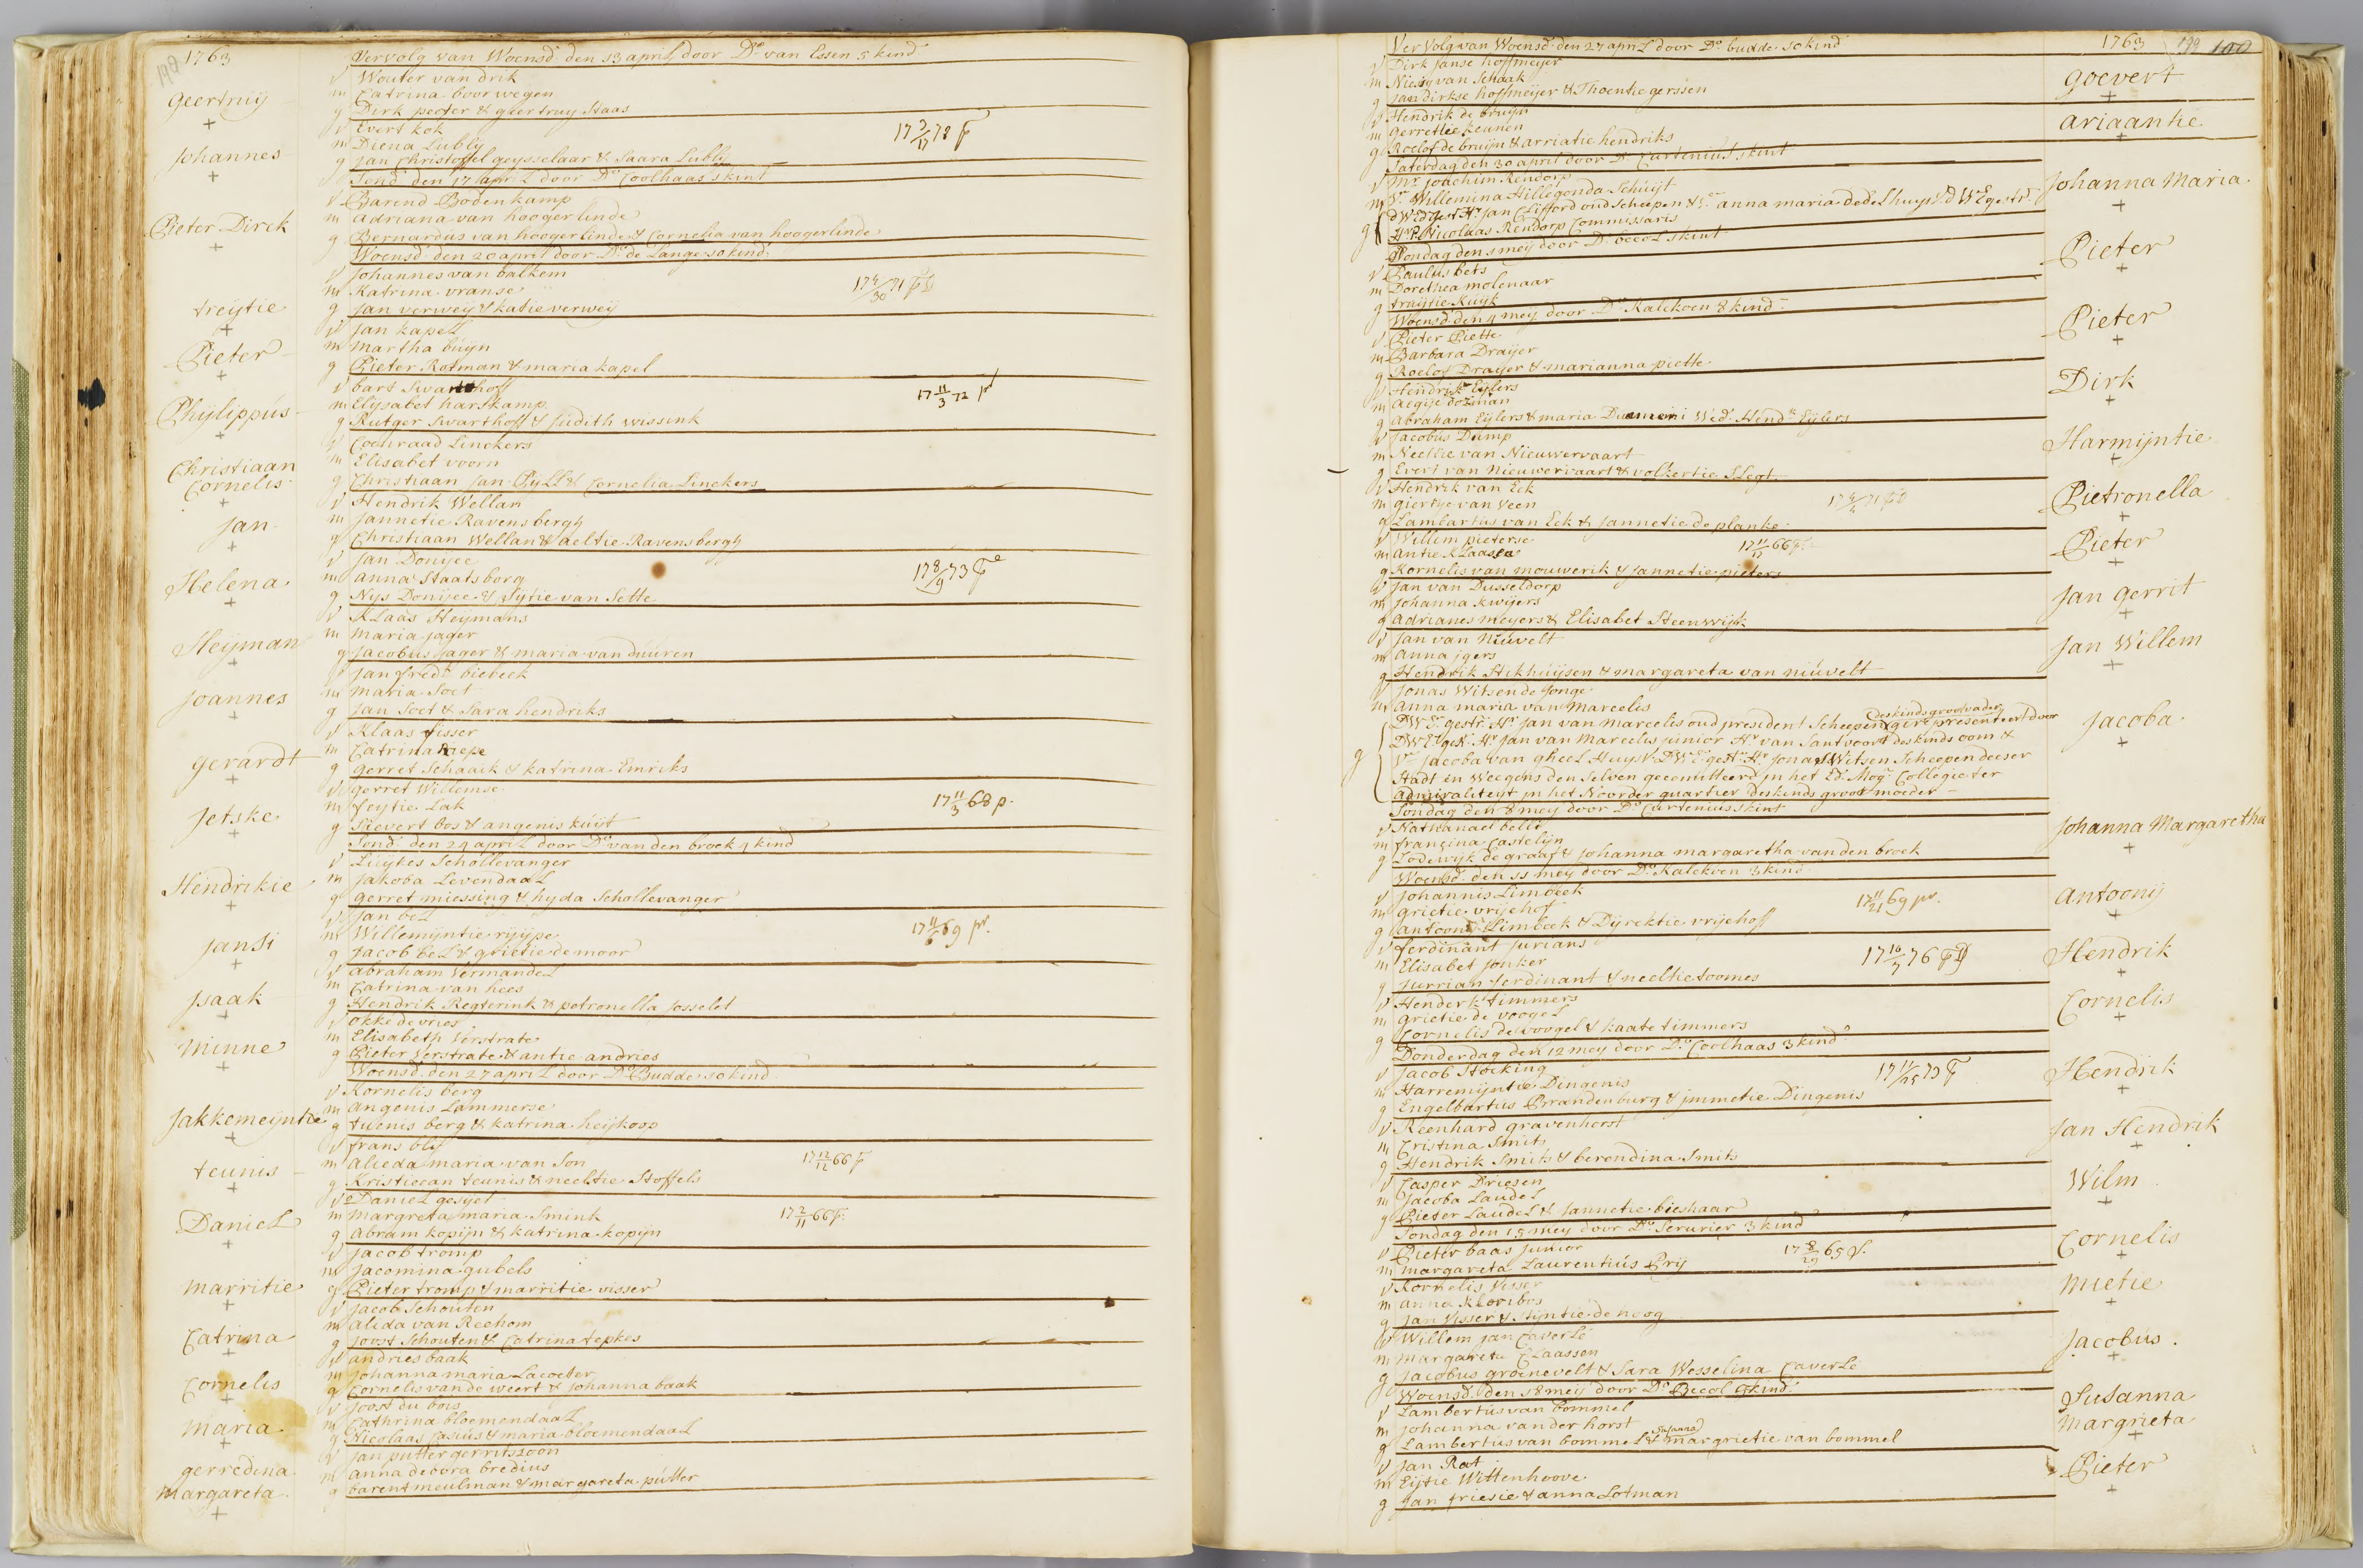 1763
Vervolg van Woensd. den 13 april door Do van Essen 5 kind
Geertruij
v Wouter van drik
m Catrina boorwegen
g Dirk peoter & geertruy Staas
Johannes
v Evert kok
m Diena Lubly
g Jan Christoffel geysselaar & Saara Lubly
17 3/17 78 F
Sond. den 17 april door Do Coolhaas 1 kint
Pieter Dirck
v Barend Bodenkamp
m adriana van hoogerlinde
g Bernardus van hoogerlinde & Cornelia van hoogerlinde
Woensd. den 20 april door Do de Lange 10 kind.
treijtie
v Johannes van balkem
m Katrina vranse
g Jan verweij & katie verweij
17 4/30 71
Pieter
v Jan kapel
m Martha buijn
g Pieter Rotman & maria kapel
Phijlippus
v bart Swarthoff
m Elijsabet hartkamp
g Rutger Swarthoff & Judith wissink
17 11/3 72
Christiaan Cornelis
v Coenraad Linckers
m Elisabet voorn
g Christiaan Jan Pyll & Cornelia Linckers
Jan
v Hendrik Wellan
m Jannetie Ravensbergh
g Christiaan Wellan & aeltie Ravensbergh
Helena
v Jan Donijee
m anna Staatsborg
g Nys Donijee & Sijtie van Sette
17 8/9 73 F
Heijman
v Klaas Heijmans
m Maria Jager
g Jacobus Jager & maria van duuren
Joannes
v Jan fredk biebeek
m Maria Soet
g Jan Soet & Sara hendriks
Gerardt
v Klaas fisser
m Catrina Riepe
g gerret Schaaik & katrina Emriks
Jetske
v gerret Willemse
m feytie Lak
g Sievert bos & angenis kuijt
17 11/3 68 p.
Sond. den 24 april door Do van den broek 4 kind
Hendrikie
v Luijkes Schollevanger
m Jakoba Levendaal
g gerret miessing & hyda Schollevanger
Jansi
v Jan bel
m Willemijntie rijype
g Jacob bel & grietie de moor
17 11/6 69 pr.
Jsaak
v abraham Vermandel
m Catrina van hees
g Hendrik Regterink & petronella Josselet
Minne
v okke de vries
m Elisabeth Verstrate
g Pieter Verstrate & antie andries
Woensd. den 27 april door Do Budde 10 kind
Jakkemeijntie
v Kornelis berg
m angenis Lammerse
g tuenis berg & katrina heijkoop
teunis
v frans blij
m alieda maria van Son
g Kristieaan teunis & neeltie Stoffels
17 12/12 66 F
Daniel
v Daniel gesijet
m margreta maria Smink
g abram kopijn & katrina kopijn
17 2/11 66 F.
Marritie
v Jacob tromp
m Jacomina gubels
g Pieter tromp & marritie visser
Catrina
v Jacob Schouten
m alida van Reehom
g Joost Schouten & Catrina tepkes
Cornelis
v andries baak
m Johanna maria Lacoeter
g Cornelis van de weert & Johanna baak
Maria
v Joost du bois
m Cathrina bloemendaal
g Nicolaas Jasius & maria bloemendaal
gerredina Margareta
v Jan putter gerritszoon
m anna debora bredius
g barent meulman & margareta putter
1763
Vervolg van Woensd. den 27 april door Do budde 10 kind
v Dirk Janse hoffmeijer
m Niesij van Schaak
g Jan dirkse hoffmeijer & Thoentie gerssen
Goevert
v Hendrik de bruijn
m Gerrettie keunen
g Roelof de bruijn & arriatie hendriks
ariaantie
Saterdag den 30 april door Do Curtenius 1 kint
v Mr Joachim Rendorp
m Vr Willemina Hillegonda Schuijt
g D W Ed gest. Hr Jan Clifford oud Scheepen & Vr anna maria dedel huysv. D W E gestr.
Hr Nicolaas Rendorp Commissaris
Johanna Maria
Sondag den 1 meij door Do becol 1 kint
v Paulus bets
m Dorethea molenaar
g traijtie Kuyk
Pieter
Woensd. den 4 meij door Do Kalckoen 8 kind
v Pieter Piette
m Barbara Draijer
g Roelof Draijer & marianna piette
Pieter
v Hendrik Eijlers
m Aegije dozman
g abraham Eijlers & maria Wed. Hendk Eijlers
Dirk
v Jacobus Dump
m Neeltie van Nieuwervaart
g Evert van nieuwervaart & volkertie Slegt
Harmijntie
v Hendrik van Eck
m giertje van Veen
g Lambartus van Eck & Jannetie de planke
Pietronella
v Willem pieterse
m antie klaasen
g Kornelis van mouwerik & Jannetie pieters
17 11/17 66 F.
Pieter
v Jan van Dusseldorp
m Johanna kwijers
g adrianes meyers & Elisabet Steenwijk
Jan gerrit
v Jan van Nuuvelt
m anna jgers
g Hendrik Stikhuijsen & margareta van nuuvelt
Jan Willem
v Jonas Witsen de Jonge
m anna maria van Marcelis
g DW Ed gestr. Hr Jan van Marcelis oud president Scheepen des kinds grootvader gerepresenteert door
DW E gest. Hr Jan van Marcelis junior Hr van Santvoort des kinds oom &
Vr Jacoba van gheel Huysv. DW E gest. Hr Jonas Witsen Scheepen deeser
Stadt en Weegens den Selven gecomitteerd jn het Ed. Mog. Collegie ter
admiraliteijt jn het Noorder quartier des kinds groot moeder
Jacoba
Sondag den 8 meij door Do Curtenius 1 kint
v Nathanael belli
m francina Castelijn
g Lodewijk de graaf & Johanna margaretha van den broek
Johanna Margaretha
Woensd. den 11 meij door Do Kalckoen 3 kind
v Johannis Limbeek
m grietie vrijehof
g antoonij Limbeek & Dijrektie vrijehoff
17 11/21 69 pr.
Antoonij
v ferdinant Jurians
m Elisabet Jonker
g Jurrian ferdinant & neeltie toomes
17 10/3 76
Hendrik
v Henderk timmers
m grietie de voogel
g Cornelis de voogel & kaate timmers
Cornelis
Donderdag den 12 meij door Do Coolhaas 3 kind
v Jacob Stocking
m Harremijntie Dingenis
g Engelbartus Brandenburg & jmmetie Dingenis
17 11/25 73 F
Hendrik
v Reenhard gravenhorst
m Cristina Smits
g Hendrik Smits & berendina Smits
Jan Hendrik
v Casper Driesen
m Jacoba Laudel
g Pieter Laudel & Jannetie bieshaar
Wilm
Sondag den 15 meij door Do Serurier 3 kind
v Pieter baas Junior
m margareta Laurentius Prij
17 8/29 65
Cornelis
v Kornelis Visser
m anna kloribos
g Jan Visser & Stijntie de hoog
Mietie
v Willem Jan Caverlé
m Margareta Claassen
g Jacobus groenevelt & Sara Wesselina Caverlé
Jacobus
Woensd. den 18 meij door Do Becol 9 kind
v Lambertus van Bommel
m Johanna van der horst
g Lambertus van bommel & Susanna margrietie van bommel
Susanna Margrieta
v Jan Rat
m Eijtie Wittenhoove
g Jan friesie & anna Lotman
Pieter